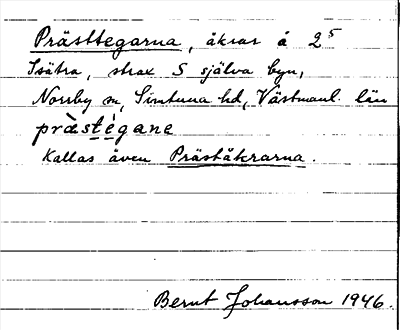 Prästtegarna, åkrar å 2⁵
Isätra, strax S själva byn,
Norrby sn, Simtuna hd, Västmanl. län
prà̀stégane
Kallas även Präståkrarna.
Bernt Johansson 1946.